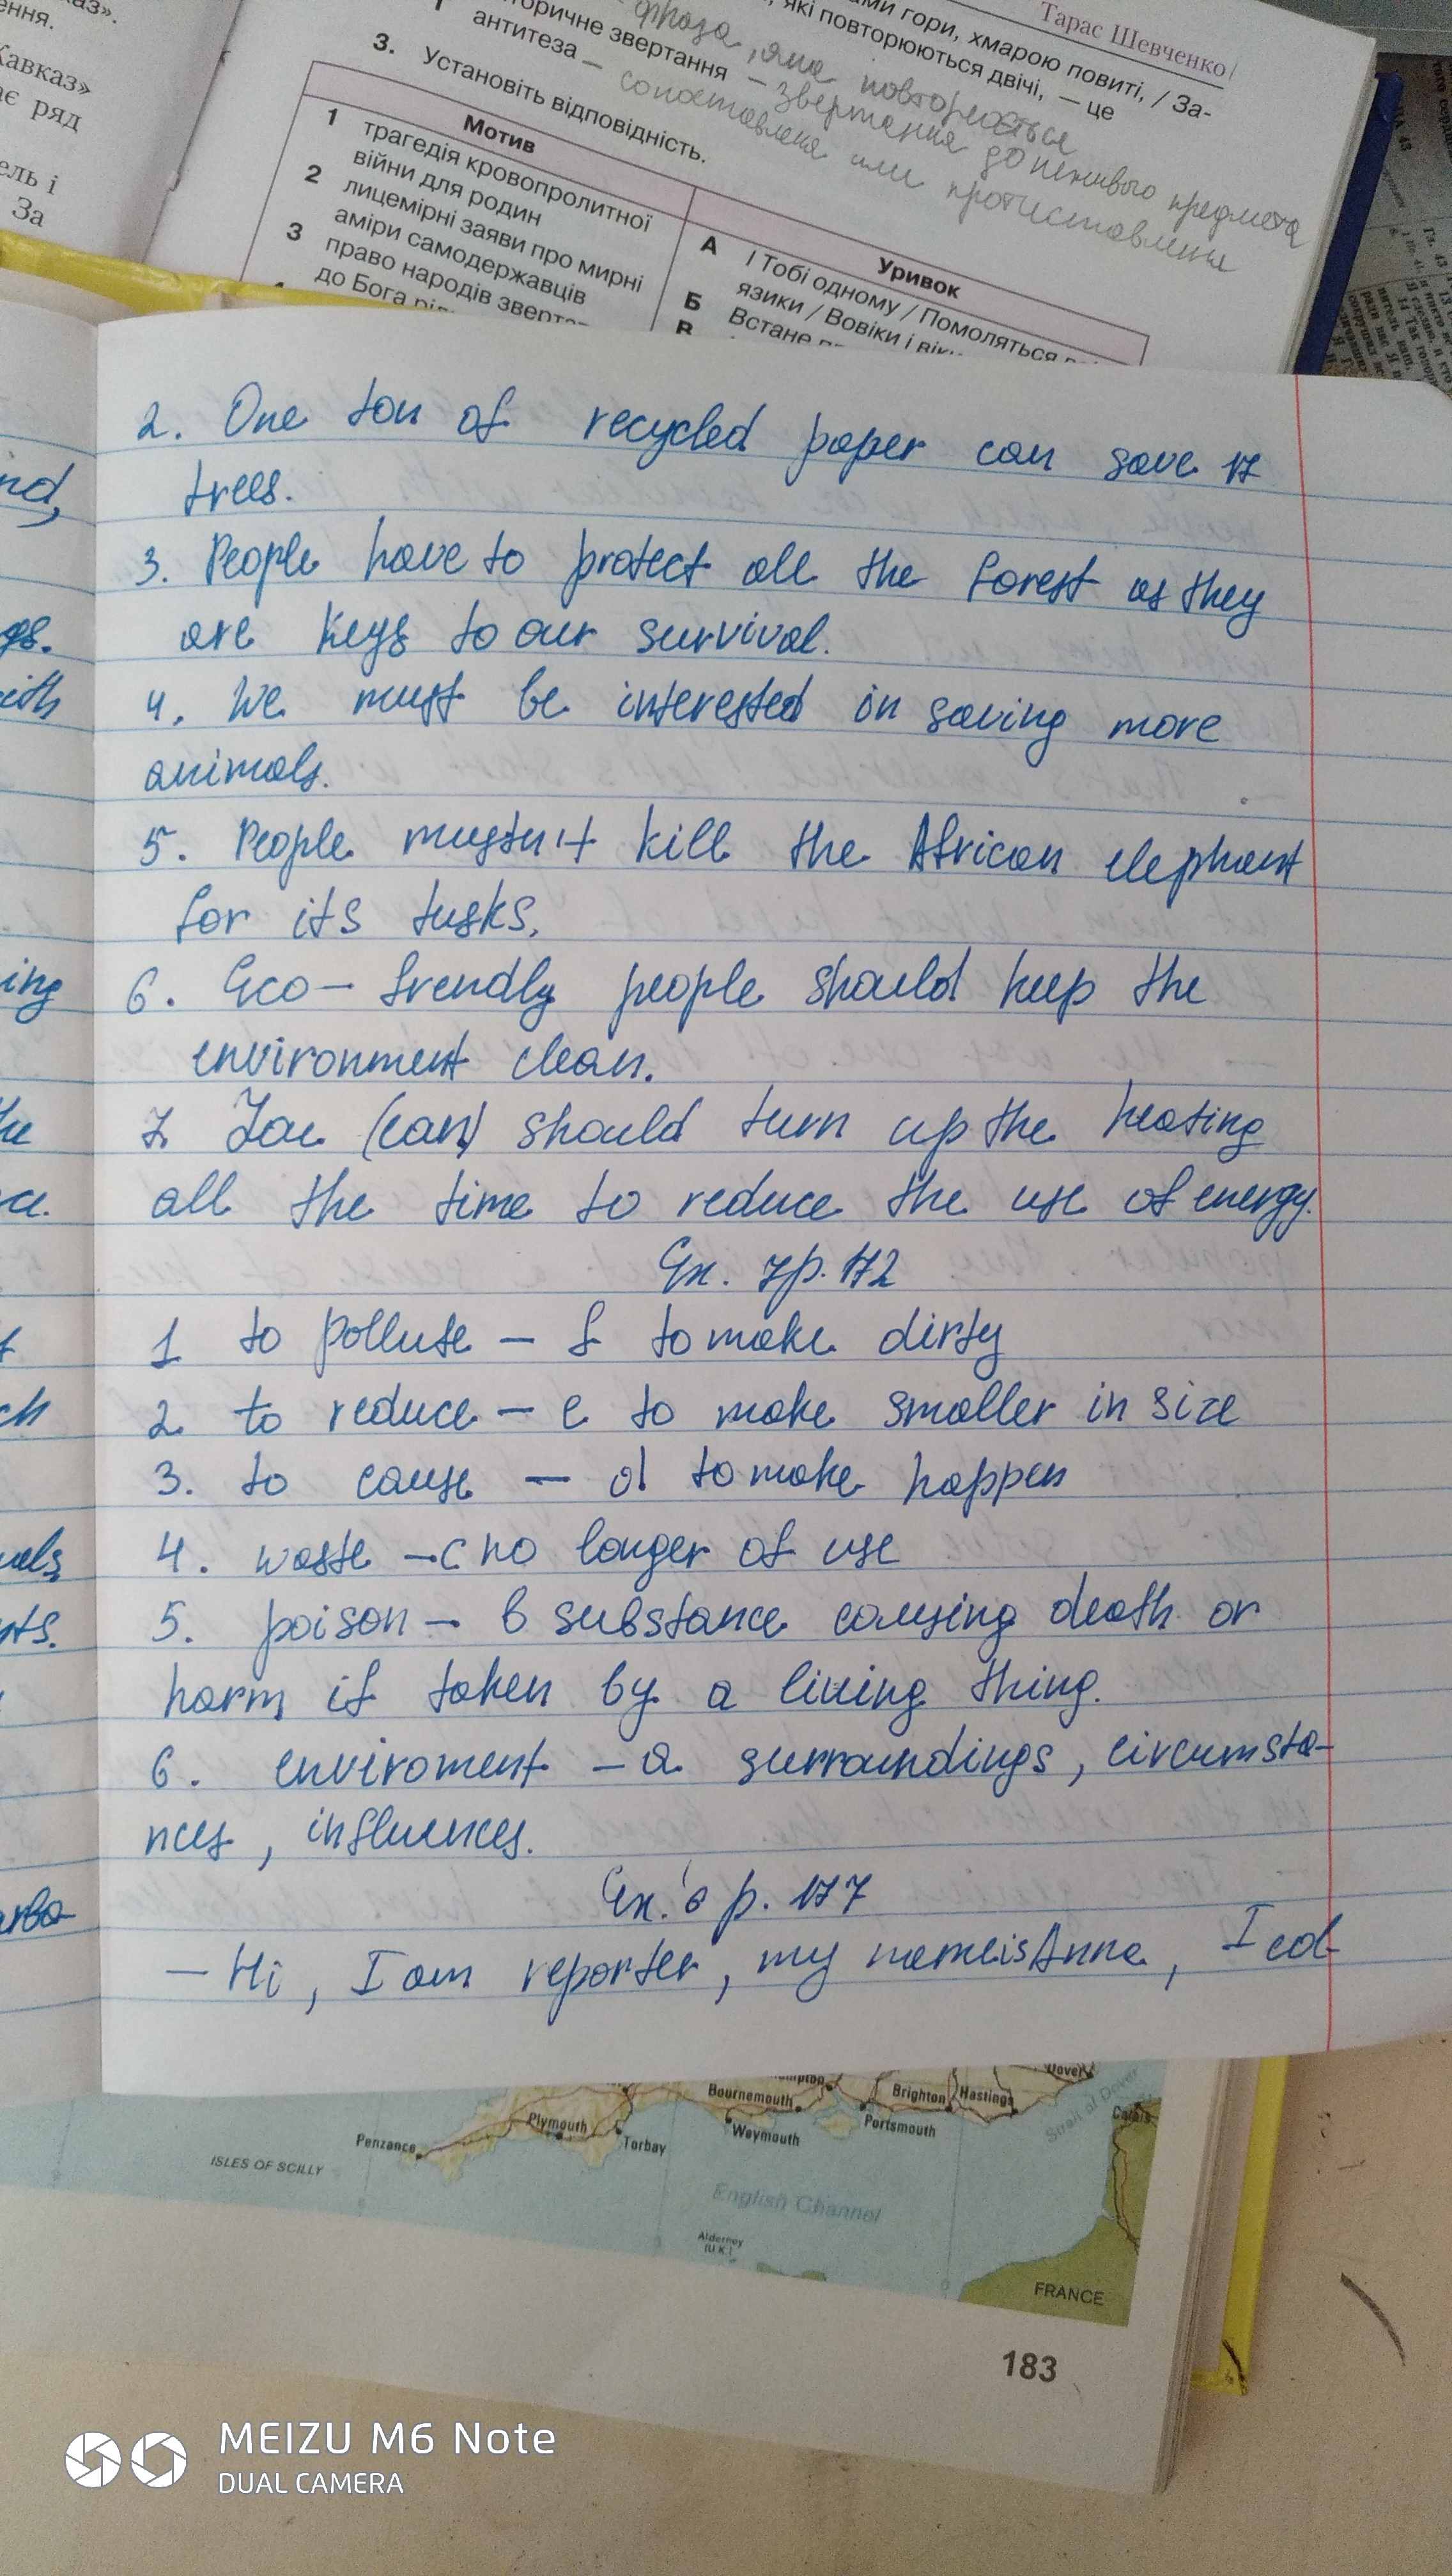 Тарас Шевченко/
ами гори, хмарою повиті, / За-
які повторюються двічі, — це
фраза, яка повторюється
оричне звертання – звертання до неживого предмета
антитеза – сопоставлена или протиставлення
3. Установіть відповідність.
Мотив
Уривок
1 трагедія кровопролитної
війни для родин
2 лицемірні заяви про мирні
аміри самодержавців
3 право народів
до Бога
А І Тобі одному / Помоляться
язики / Вовіки і
Б Встане
В
Кавказ»
є ряд
ель і
За
ення.
2. One ton of recycled paper can save 17
trees.
3. People have to protect all the forest as they
are keys to our survival.
4. We must be interested in saving more
animals.
5. People mustn't kill the African elephant
for its tusks.
6. Eco – frendly people should keep the
environment clean.
7. You (can) should turn up the heating
all the time to reduce the use of energy.
Ex. 7 p. 172
1 to pollute – f to make dirty
2 to reduce – e to make smaller in size
3. to cause – d to make happen
4. waste – c no longer of use
5. poison – b substance causing death or
harm if taken by a living thing.
6. enviroment – a surroundings, circumsta-
nces, influences.
Ex. 6 p. 177
– Hi, I am reporter, my name is Anna, I col-
nd,
ith
ing
Dover
Bournemouth
Brighton
Hastings
Strait of Dover
Calais
Plymouth
Portsmouth
Weymouth
Penzance
Torbay
ISLES OF SCILLY
English Channel
Alderney
(U.K.)
FRANCE
183
MEIZU M6 Note
DUAL CAMERA